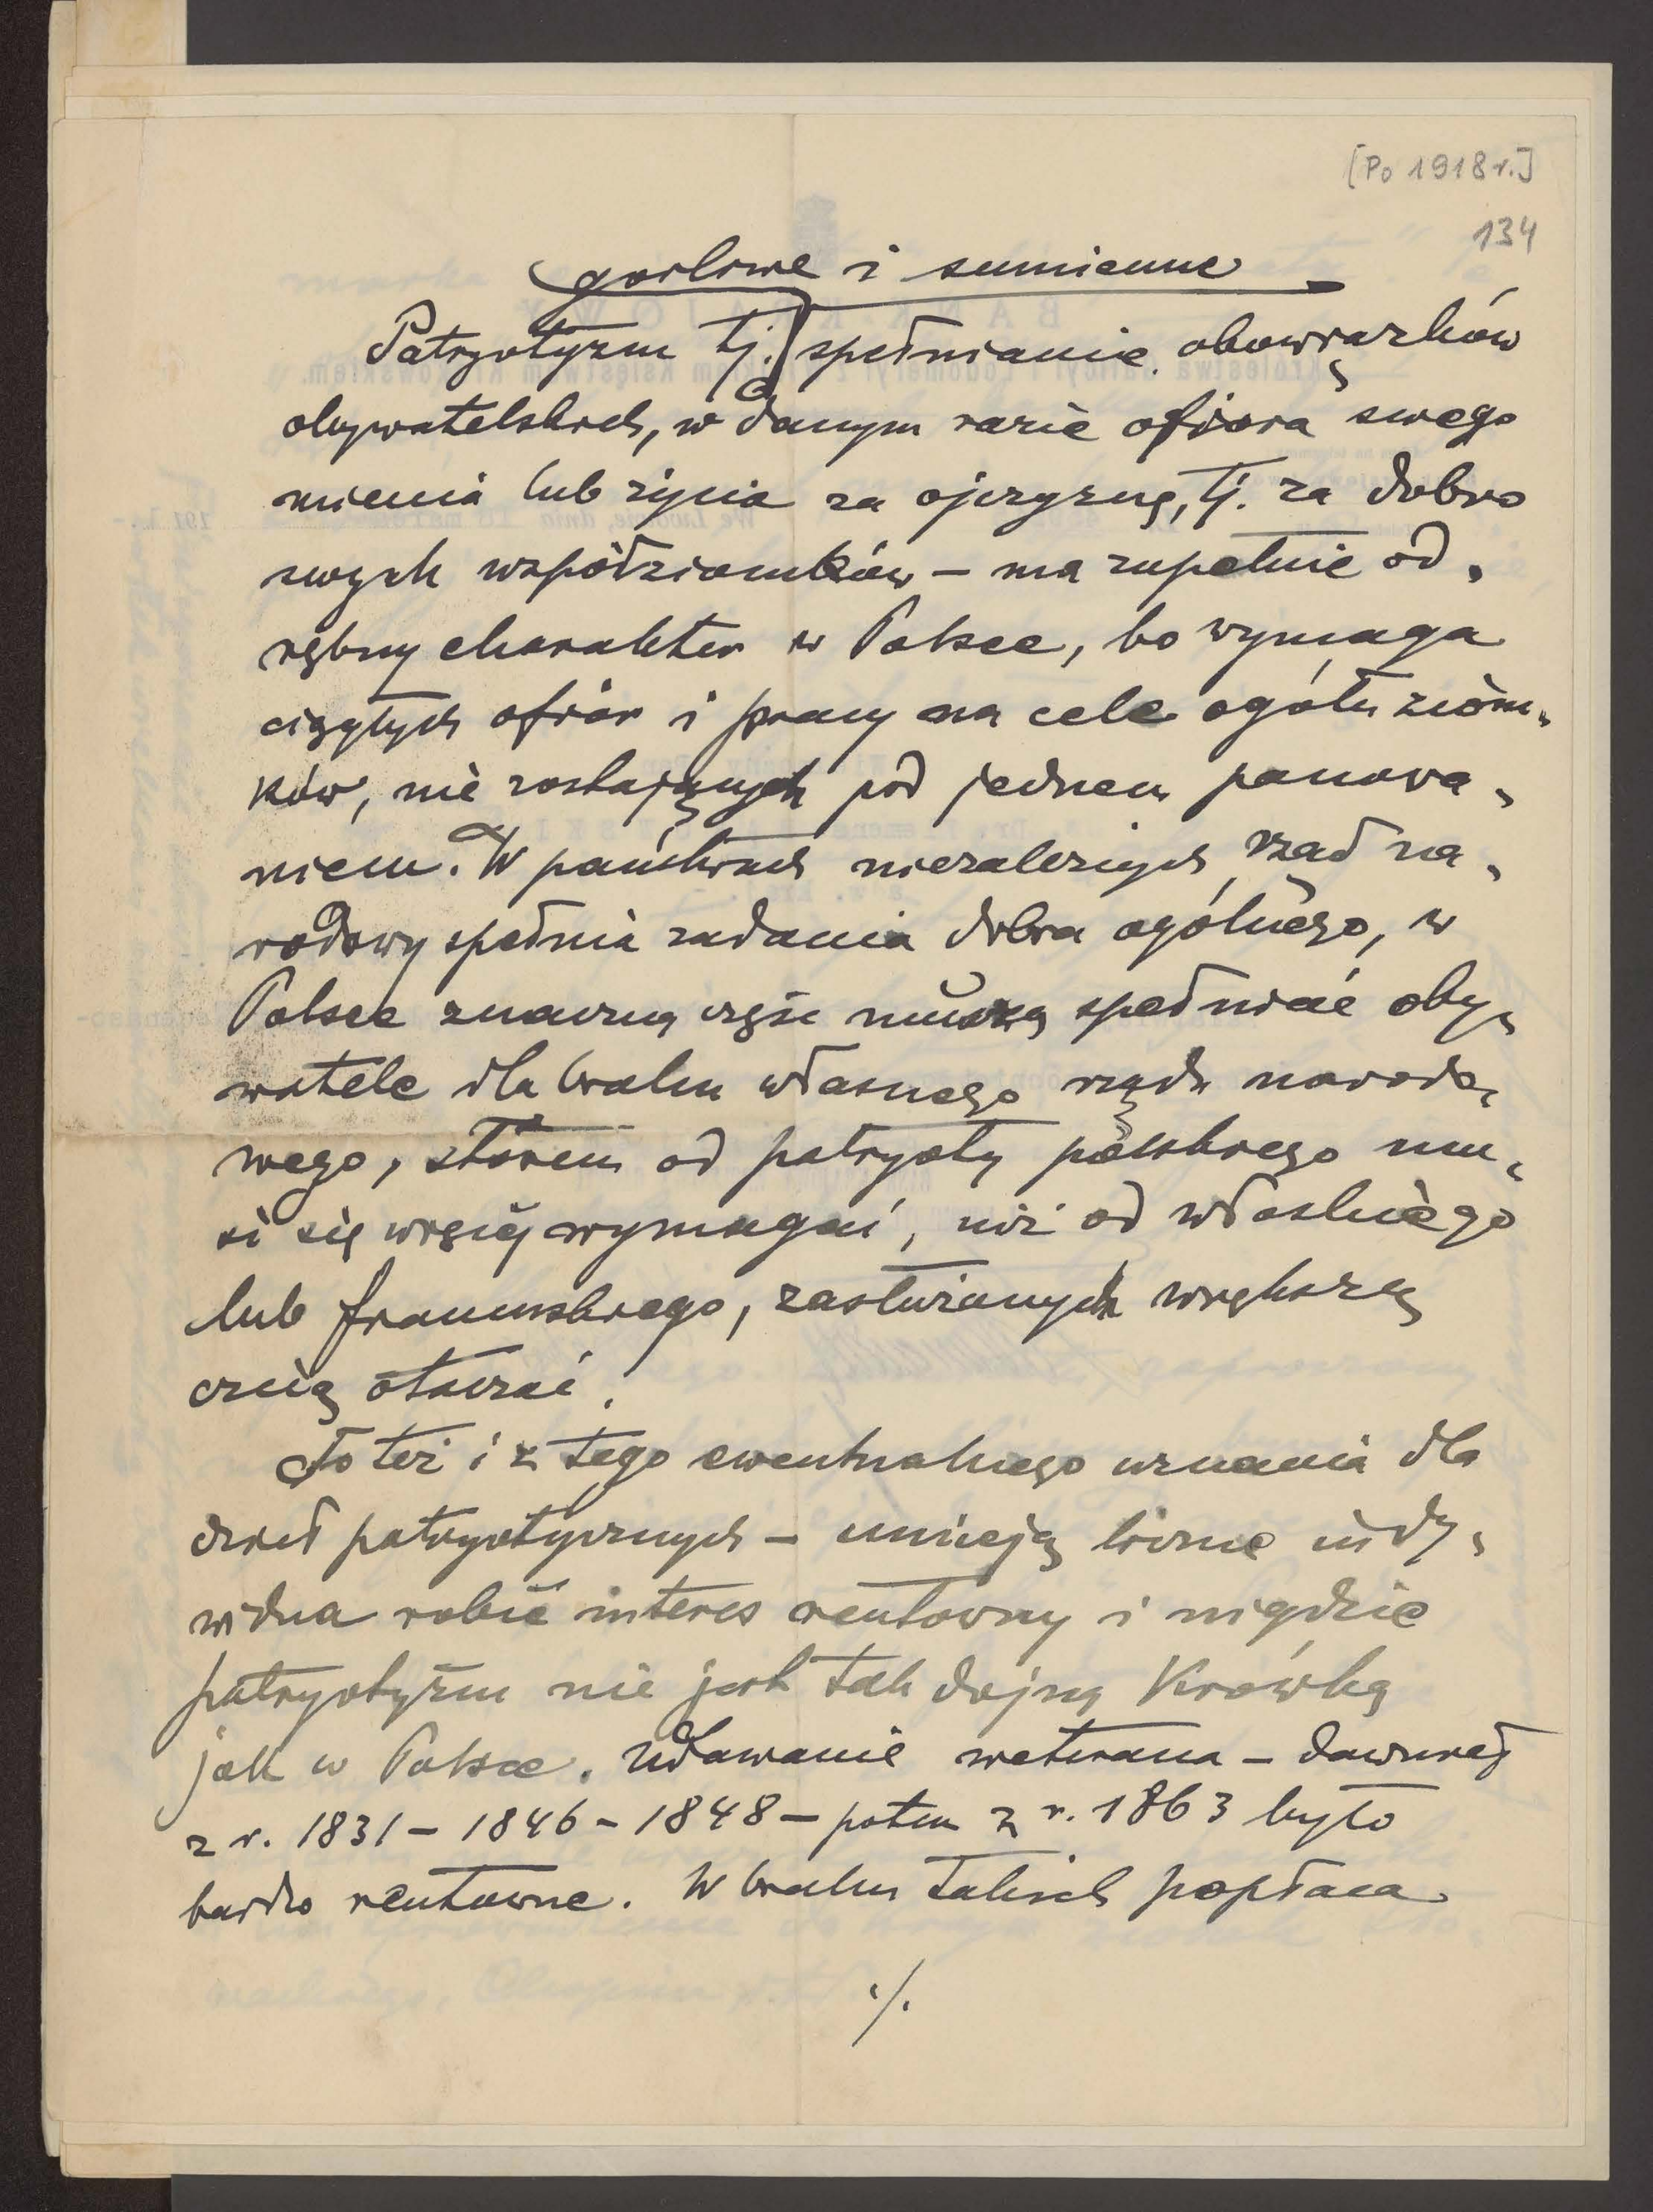 [Po 1918 r.]
134
gorliwe i sumienne
Patryotyzm tj. spełnianie obowiązków
obywatelskich, w danym razie ofiara swego
mienia lub życia za ojczyznę, tj. za dobro
swych współziomków – ma zupełnie od„
rębny charakter w Polsce, bo wymaga
ciągłych ofiar i pracy na cele ogółu ziom„
ków, nie zostających pod jednem panowa„
niem. W państwach niezależnych rząd na„
rodowy spełnia zadania dobra ogólnego, w
Polsce znaczną część muszą spełniać oby„
watele dla braku własnego rządu narodo„
wego, zatem od patryoty polskiego mu„
si się więcej wymagać, niż od włoskiego
lub francuskiego, zasłużonych większą
czcią otaczać.
To też i z tego ewentualnego uznania dla
dzieł patryotycznych – umieją liczne indy„
widua robić interes rentowny i nigdzie
patryotyzm nie jest tak dojną krówką
jak w Polsce. Udawanie weterana – dawniej
z r. 1831 – 1846 – 1848 – potem z r. 1863 było
bardzo rentowne. W braku takich popłaca
./.